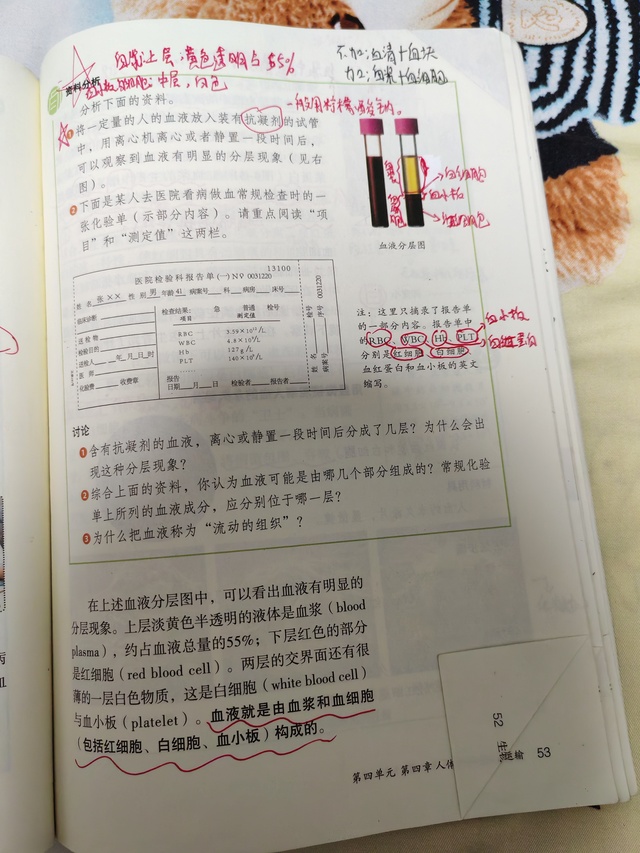 血浆:上层,黄色透明占55%
不加:血清+血块
加:血浆+血细胞
资料分析
中层,白色
分析下面的资料。
一般用柠檬酸钠。
1 将一定量的人的血液放入装有抗凝剂的试管
中,用离心机离心或者静置一段时间后,
可以观察到血液有明显的分层现象(见右
图)。
2 下面是某人去医院看病做血常规检查时的一
张化验单(示部分内容)。请重点阅读“项
目”和“测定值”这两栏。
血浆
白细胞
血小板
红细胞
血液分层图
13100
医院检验科报告单(一)No 0031220
姓名 张×× 性别 男 年龄 41 病案号 科 病房 床号
临床诊断
送检物
检验目的
送验人 年 月 日 时
医师
化验费 收费章
检查结果: 急 普通 检号
项目 测定值
RBC 3.59×10¹²/L
WBC 4.8×10⁹/L
Hb 127g/L
PLT 140×10⁹/L
报告
日期 月 日 检验者 报告者
0031220
姓名
病案号
注:这里只摘录了报告单
的一部分内容。报告单中
的RBC、WBC、Hb、PLT
分别是红细胞、白细胞、
血红蛋白和血小板的英文
缩写。
血小板
血红蛋白
讨论
1 含有抗凝剂的血液,离心或静置一段时间后分成了几层?为什么会出
现这种分层现象?
2 综合上面的资料,你认为血液可能是由哪几个部分组成的?常规化验
单上所列的血液成分,应分别位于哪一层?
3 为什么把血液称为“流动的组织”?
在上述血液分层图中,可以看出血液有明显的
分层现象。上层淡黄色半透明的液体是血浆(blood
plasma),约占血液总量的55%;下层红色的部分
是红细胞(red blood cell)。两层的交界面还有很
薄的一层白色物质,这是白细胞(white blood cell)
与血小板(platelet)。血液就是由血浆和血细胞
(包括红细胞、白细胞、血小板)构成的。
第四单元 第四章 人体
运输 53
52 生